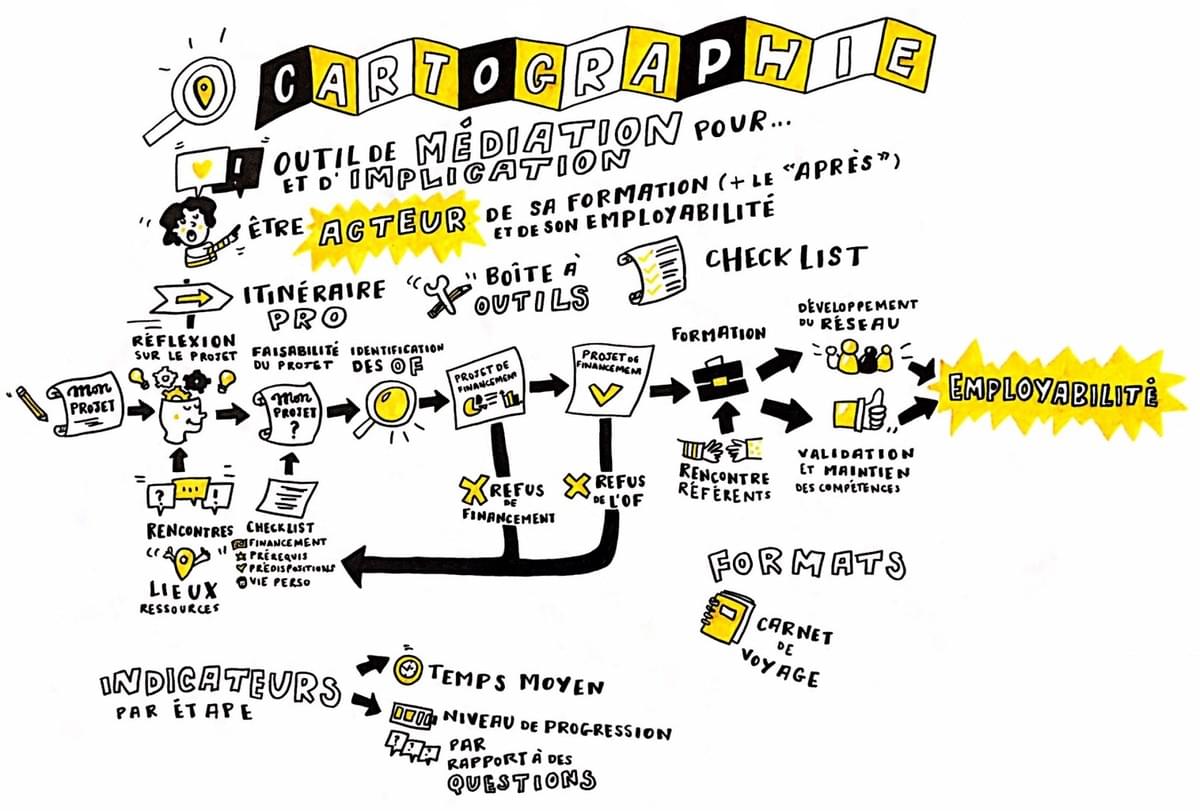 CARTOGRAPHIE
OUTIL DE MÉDIATION POUR...
ET D'IMPLICATION
ÊTRE ACTEUR DE SA FORMATION (+ LE "APRÈS")
ET DE SON EMPLOYABILITÉ
ITINÉRAIRE
PRO
BOÎTE À
OUTILS
CHECK LIST
mon
PROJET
RÉFLEXION
SUR LE PROJET
FAISABILITÉ
DU PROJET
mon
PROJET
?
IDENTIFICATION
DES OF
PROJET DE
FINANCEMENT
PROJET DE
FINANCEMENT
FORMATION
DÉVELOPPEMENT
DU RÉSEAU
EMPLOYABILITÉ
VALIDATION
ET MAINTIEN
DES COMPÉTENCES
RENCONTRE
RÉFÉRENTS
REFUS
DE
FINANCEMENT
REFUS
DE L'OF
? ... !
RENCONTRES
LIEUX
RESSOURCES
CHECKLIST
FINANCEMENT
PRÉREQUIS
PRÉDISPOSITIONS
VIE PERSO
FORMATS
CARNET
DE
VOYAGE
INDICATEURS
PAR ÉTAPE
TEMPS MOYEN
NIVEAU DE PROGRESSION
???
PAR
RAPPORT À DES
QUESTIONS